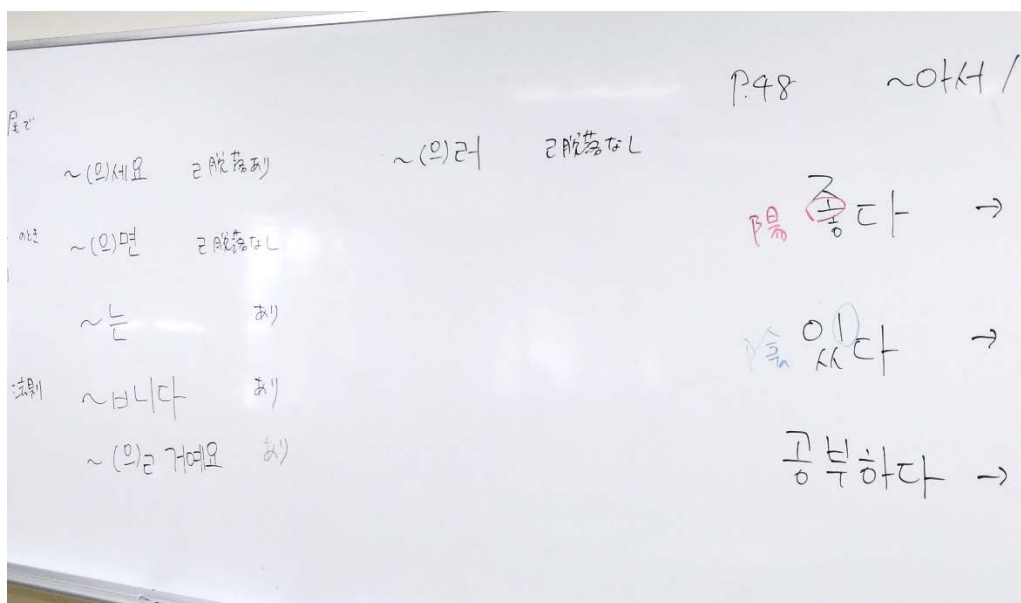 ~(으)세요 ㄹ脱落あり
~(으)면 ㄹ脱落なし
~는 あり
法則
~ㅂ니다 あり
~(으)ㄹ 거예요 あり
~(으)러 ㄹ脱落なし
P.48 ~아서 /
陽 좋다 →
陰 있다 →
공부하다 →